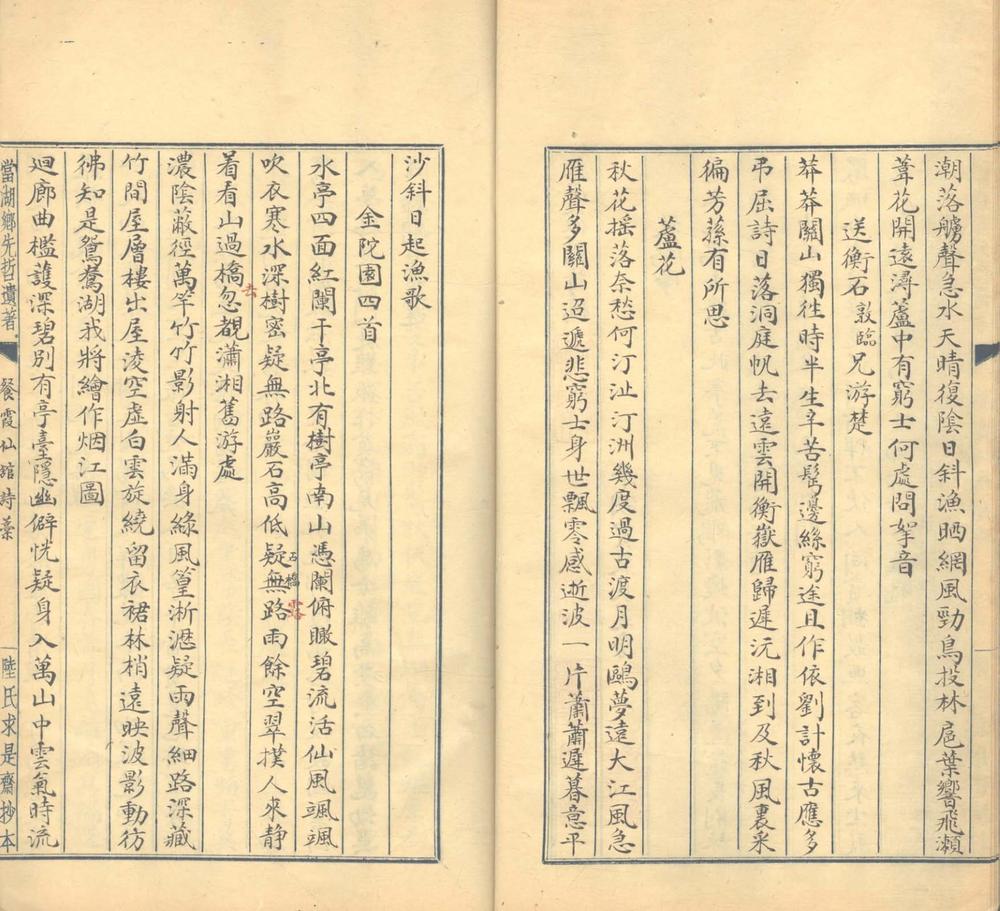 潮落艣聲急水天晴復陰日斜漁晒網風勁鳥投林扈葉響飛瀨
葦花開遠潯蘆中有窮士何處問挐音
送衡石敦臨兄游楚
莽莽關山獨徃時半生辛苦髩邊絲窮途且作依劉計懷古應多
弔屈詩日落洞庭帆去遠雲開衡嶽雁歸遲沅湘到及秋風裏采
徧芳蓀有所思
蘆花
秋花摇落奈愁何汀沚汀洲幾度過古渡月明鷗夢遠大江風急
雁聲多關山迢遞悲窮士身世飄零感逝波一片蕭蕭遲暮意平
沙斜日起漁歌
金陀園四首
水亭四面紅闌干亭北有樹亭南山憑闌俯瞰碧流活仙風颯颯
吹衣寒水深樹密疑無路巖石高低疑無路雨餘空翠撲人來靜
石橋露
着看山過橋忽覩瀟湘舊游處
去
濃陰蔽徑萬竿竹竹影射人滿身綠風篁淅瀝疑雨聲細路深藏
竹間屋層樓出屋淩空虛白雲旋繞留衣裾林梢遠映波影動彷
彿知是鴛鴦湖我將繪作烟江圖
迴廊曲檻護深碧別有亭臺隱幽僻恍疑身入萬山中雲氣時流
當湖鄉先哲遺著
餐霞仙館詩藁
陸氏求是齋抄本